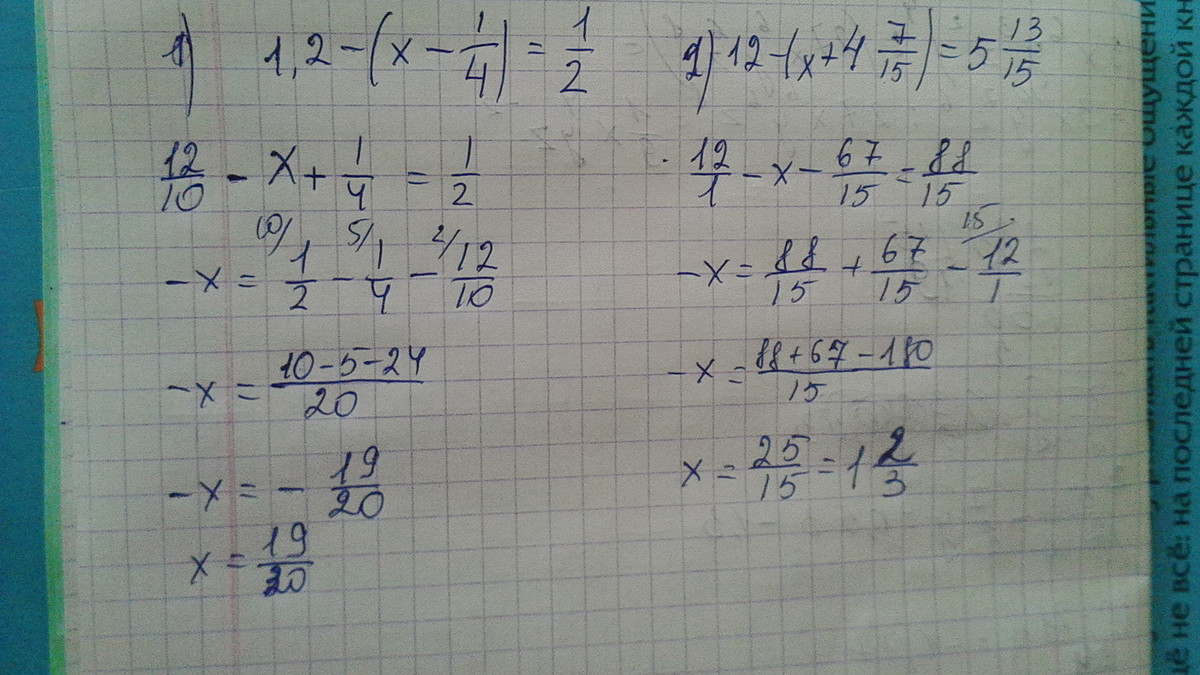 1) 1,2 - (x - 1/4) = 1/2
12/10 - x + 1/4 = 1/2
-x = 10/ 1/2 - 5/ 1/4 - 2/ 12/10
-x = (10-5-24)/20
-x = - 19/20
x = 19/20
2) 12 - (x + 4 7/15) = 5 13/15
12/1 - x - 67/15 = 88/15
-x = 88/15 + 67/15 - 15/ 12/1
-x = (88+67-180)/15
x = 25/15 = 1 2/3
тактильные ощущени
щё не всё: на последней странице каждой кн